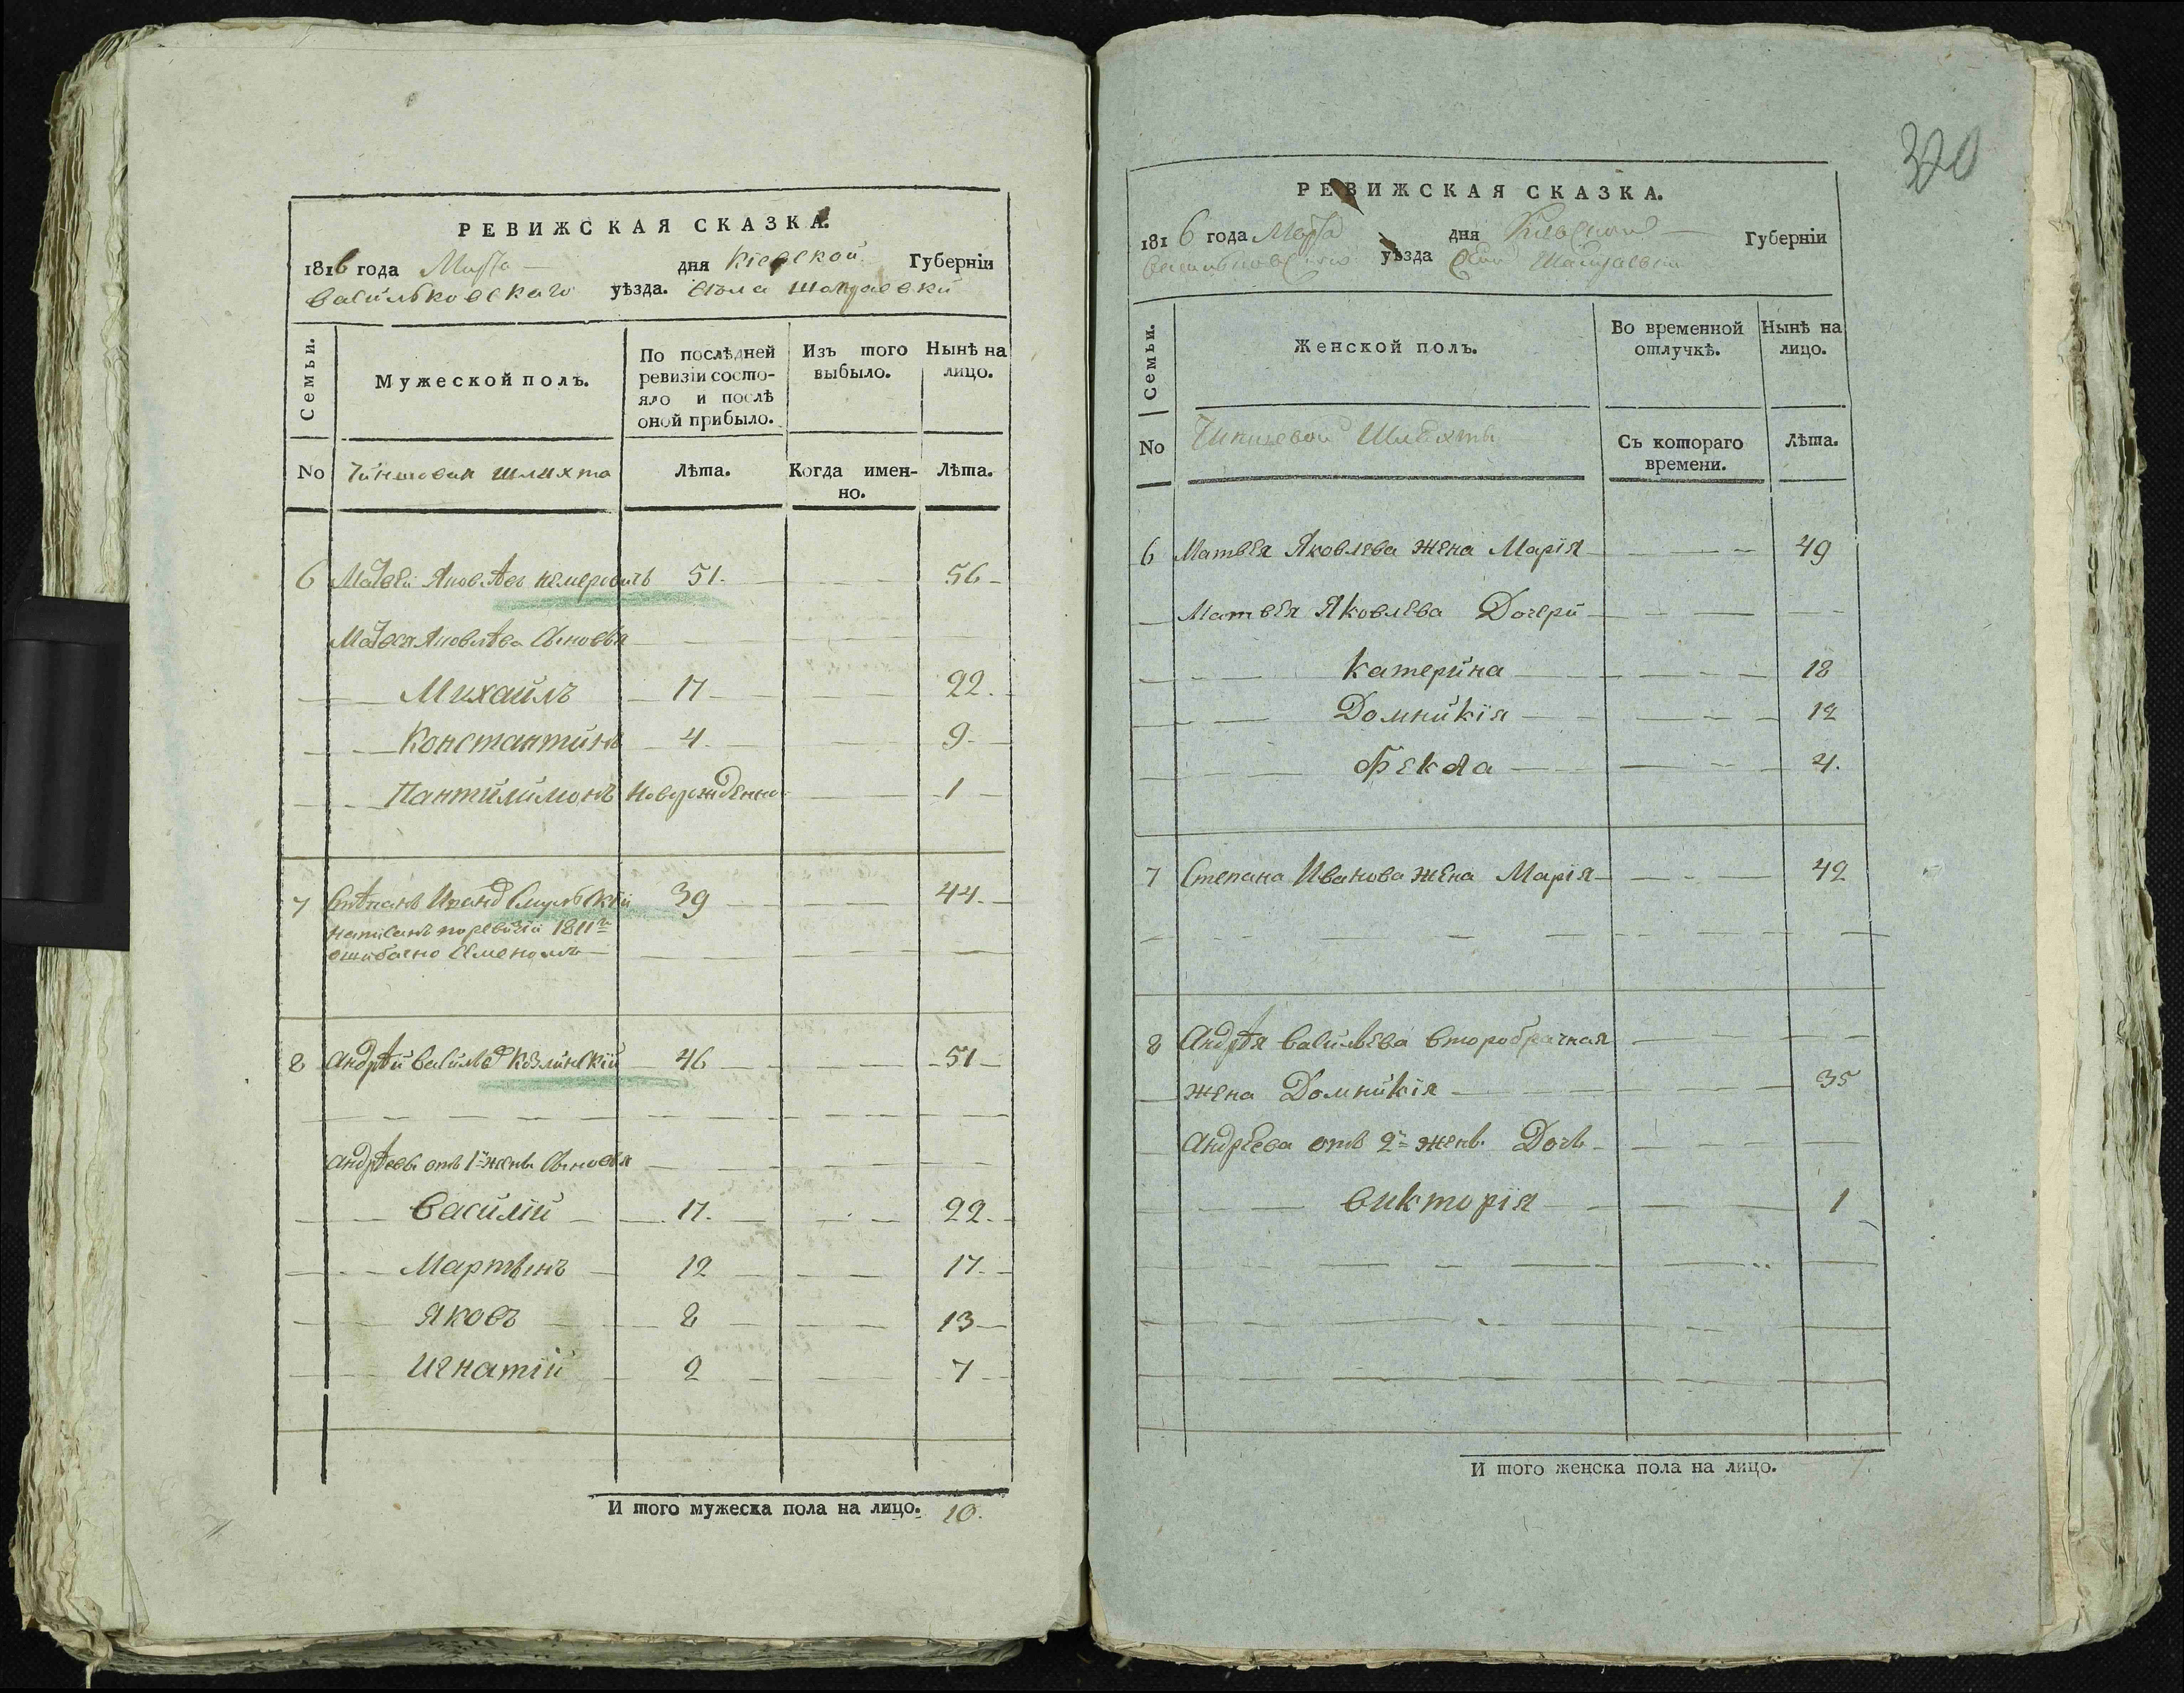 РЕВИЖСКАЯ СКАЗКА.
1816 года Марта дня Кіевской Губерніи
Васильковскаго уѣзда. Села
Семьи.
Мужеской полъ.
По послѣдней ревизіи состо-
яло и послѣ
оной прибыло.
Изъ того
выбыло.
Нынѣ на
лицо.
No Чиншовая шляхта Лѣта. Когда имен-
но. Лѣта.
6 Матвей Яковлевъ 51. 56
Матвея Яковлева Сыновья
Михайлъ 17 22.
Константинъ 4. 9
Пантилимонъ Новорожденъ 1
7 Степанъ Иванов 39 44
написанъ по ревизіи 1811го
ошибочно Семеномъ
8 Андрѣй Васильев Козлинскій 46 51
Андрѣевы отъ 1й жены Сыновья
Василій 17. 22.
Мартынъ 12 17.
Яковъ 8 13
Игнатій 2 7
И того мужеска пола на лицо. 10.
320
РЕВИЖСКАЯ СКАЗКА.
1816 года Марта дня Кіевской Губерніи
Васильковского уѣзда Села
Семьи.
Женской полъ.
Во временной
отлучкѣ.
Нынѣ на
лицо.
No Чиншевой Шляхты Съ котораго
времени. Лѣта.
6 Матвѣя Яковлева жена Марія 49
Матвѣя Яковлева Дочери
Катерина 18
Домникія 12
Фекла 4.
7 Степана Иванова жена Марія 42
8 Андрѣя Васильева второбрачная
жена Домникія 35
Андрѣева отъ 2й жены Дочь
Викторія 1
И того женска пола на лицо. 7.